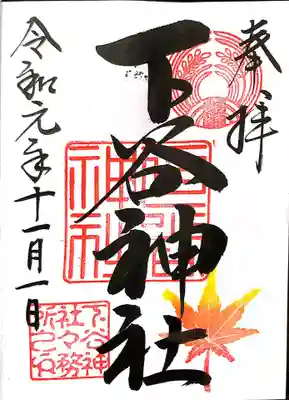 奉拝
下谷神社
令和元年十一月一日
下谷神
社々務
所之印